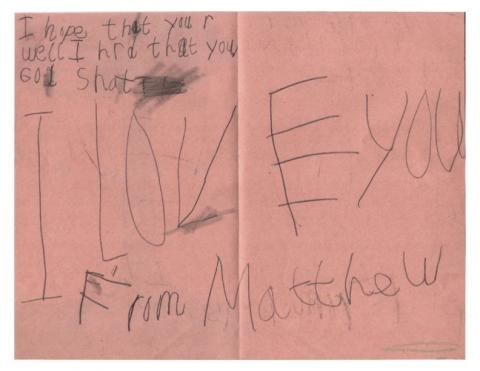 I hope that you r
well I hrd that you
God Shat
I LOVE YOU
From Matthew